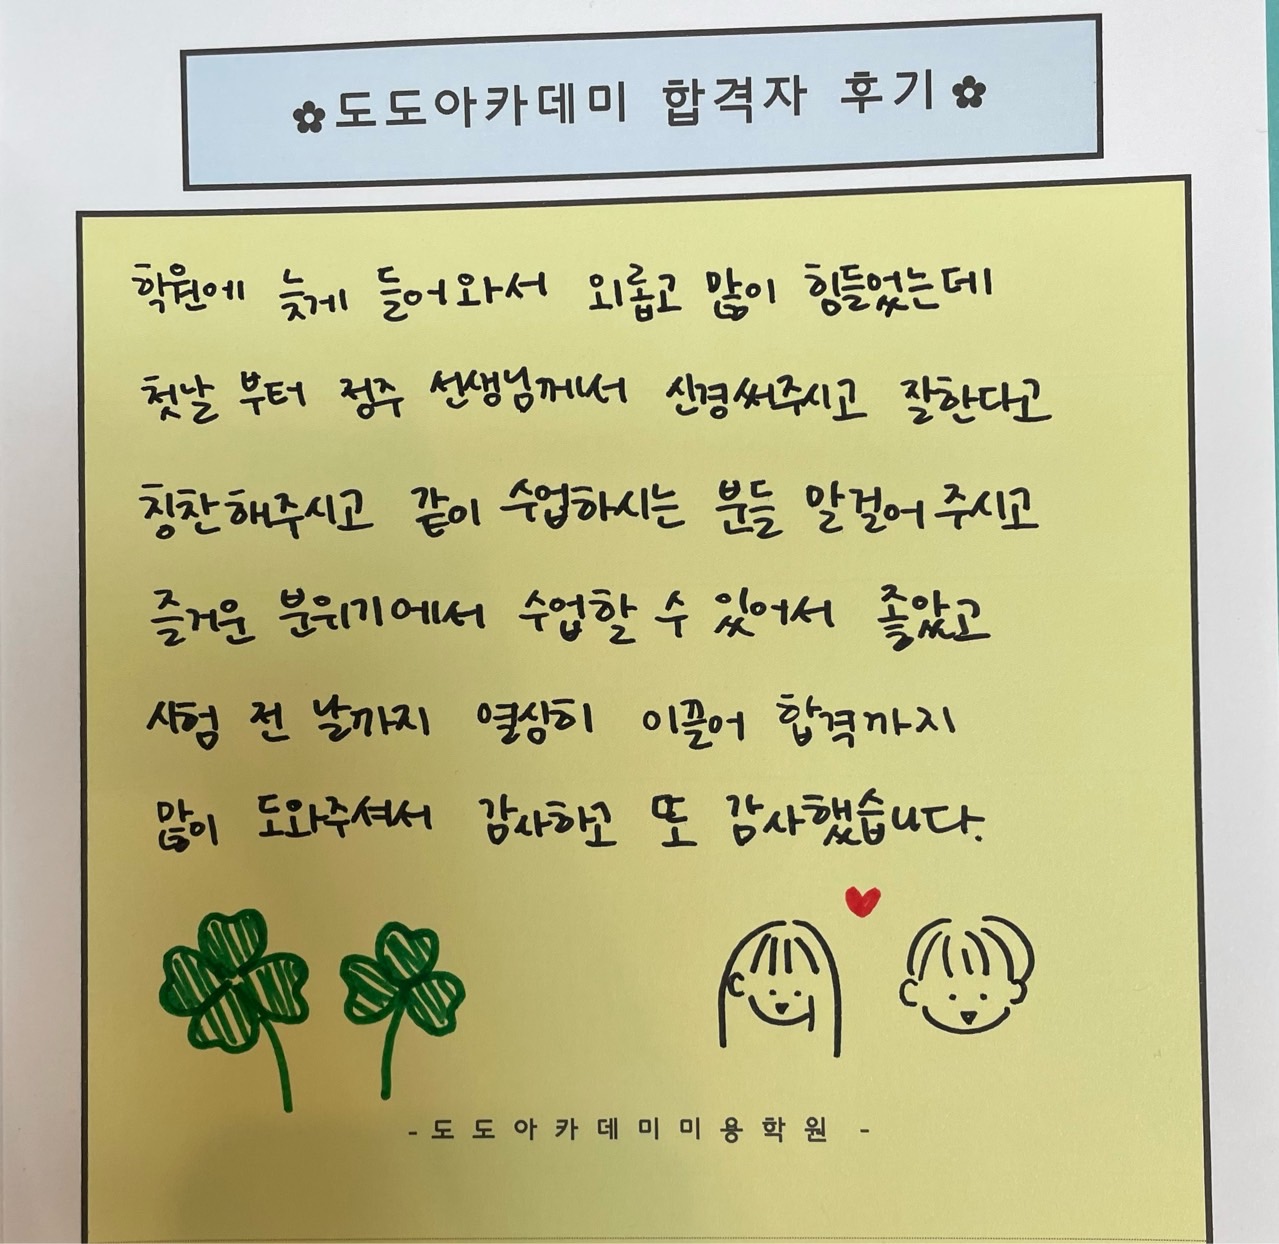 ✿도도아카데미 합격자 후기✿
학원에 늦게 들어와서 외롭고 많이 힘들었는데
첫날 부터 정주 선생님께서 신경써주시고 잘한다고
칭찬해주시고 같이 수업하시는 분들 말걸어 주시고
즐거운 분위기에서 수업할 수 있어서 좋았고
시험 전 날까지 열심히 이끌어 합격까지
많이 도와주셔서 감사하고 또 감사했습니다.
- 도도아카데미미용학원 -